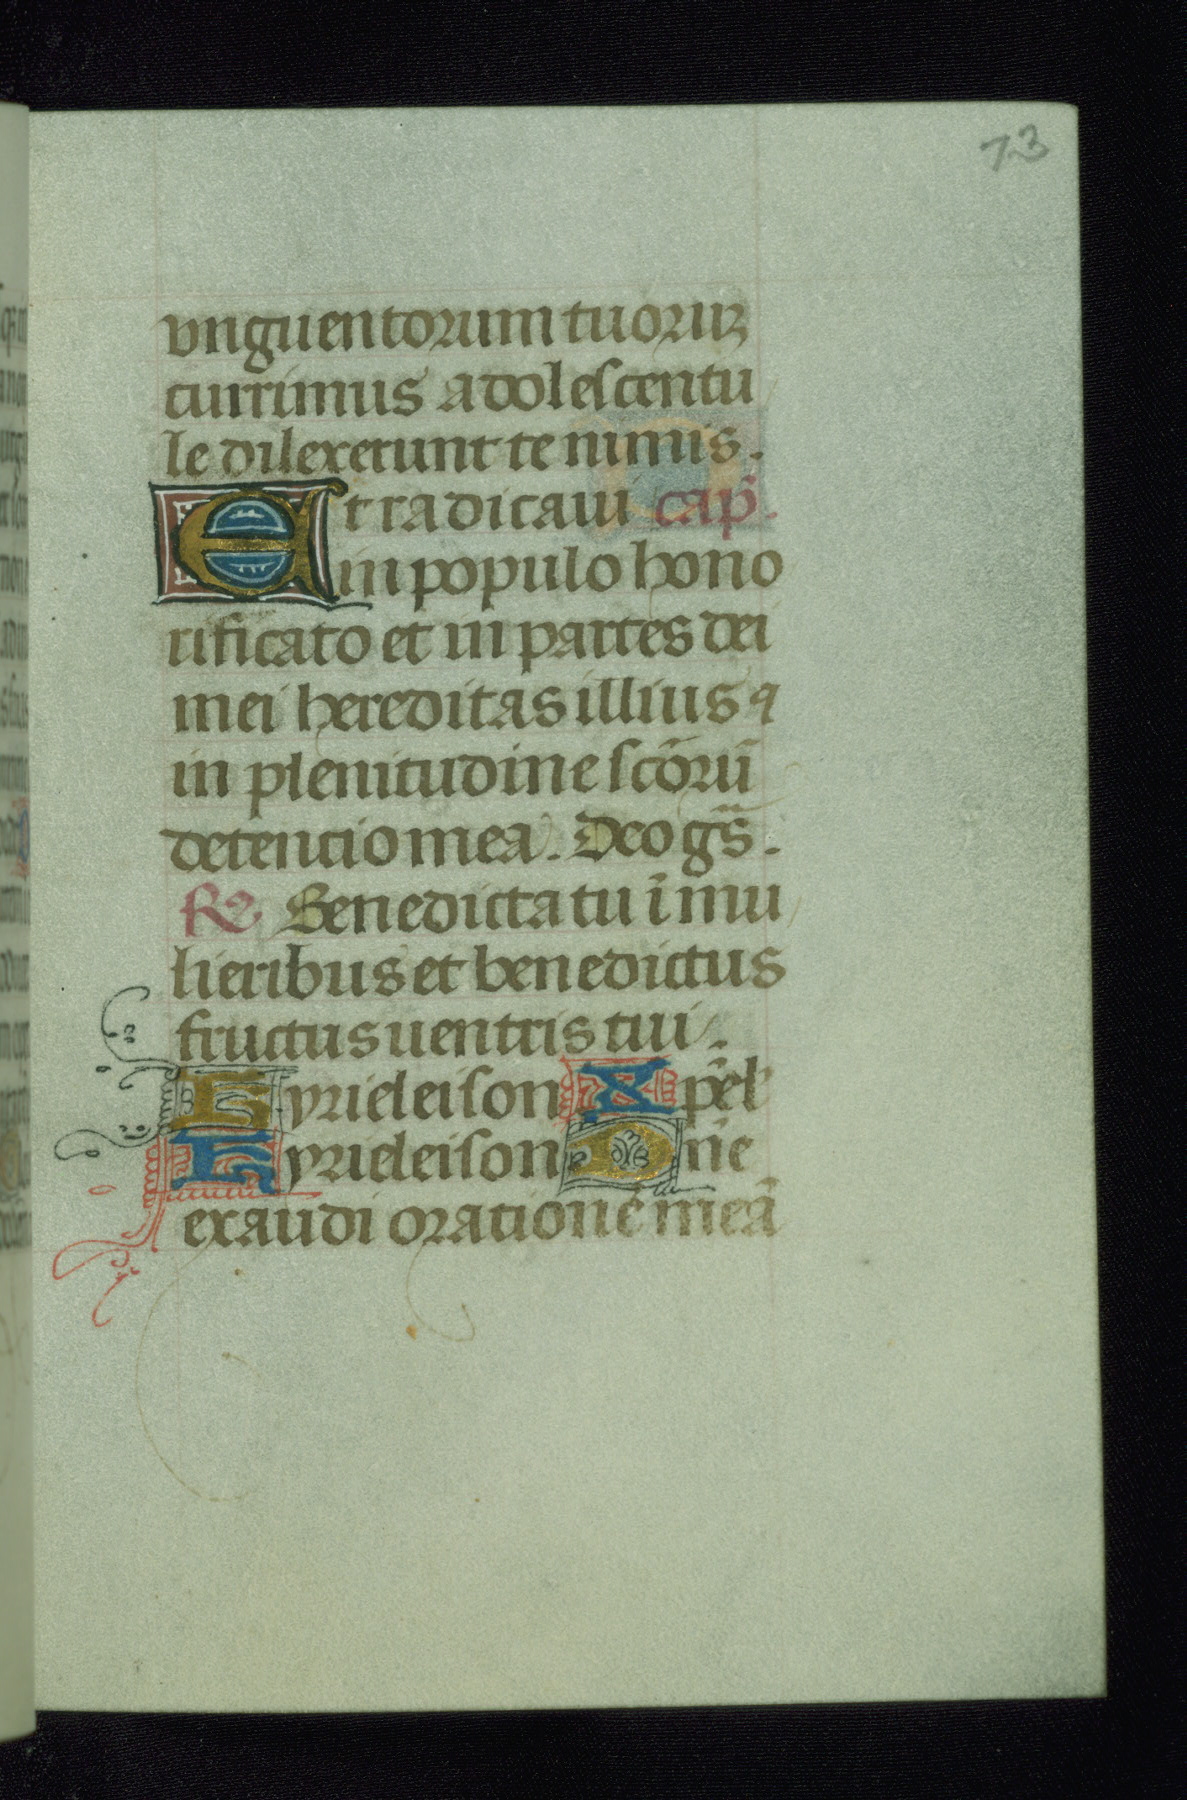 73
vnguentorum tuoruꝫ
currimus adolescentu
le dilexerunt te nimis.
Et radicaui cap̃.
in populo hono
rificato et in partes dei
mei hereditas illius ⁊
in plenitudine sc̃orũ
detencio mea. Deo gr̃s.
R⁊ Benedicta tu ĩ mu
lieribus et benedictus
fructus uentris tui.
Kyrieleison Xp̃el'
Kyrieleison Dn̄e
exaudi orationẽ meã